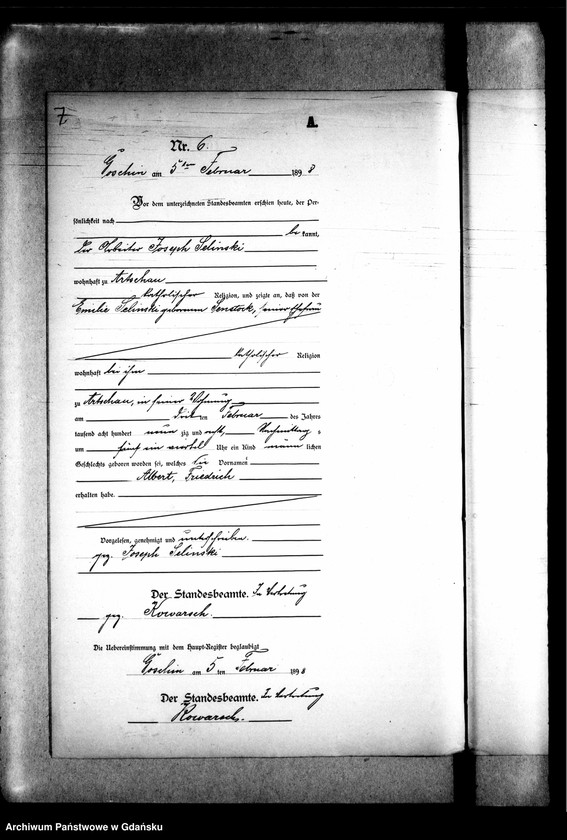 7
A.
Nr. 6.
Goschin am 5ten Februar 1898
Vor dem unterzeichneten Standesbeamten erschien heute, der Per-
sönlichkeit nach
be kannt,
der Arbeiter Joseph Selinski
wohnhaft zu Artschau
katholischer Religion, und zeigte an, daß von der
Emilie Selinski geborenen Senstock, seiner Ehefrau
katholischer Religion
wohnhaft bei ihm
zu Artschau, in seiner Wohnung
am ten Februar des Jahres
tausend acht hundert neun zig und acht, Nachmittags
um fünf ein viertel Uhr ein Kind männ lichen
Geschlechts geboren worden sei, welches die Vornamen
Albert, Friedrich
erhalten habe.
Vorgelesen, genehmigt und unterschrieben.
gez. Joseph Selinski
Der Standesbeamte. In Vertretung
gez. Kowarsch.
Die Uebereinstimmung mit dem Haupt-Register beglaubigt
Goschin am 5 ten Februar 1898
Der Standesbeamte. In Vertretung
Kowarsch.
Archiwum Państwowe w Gdańsku